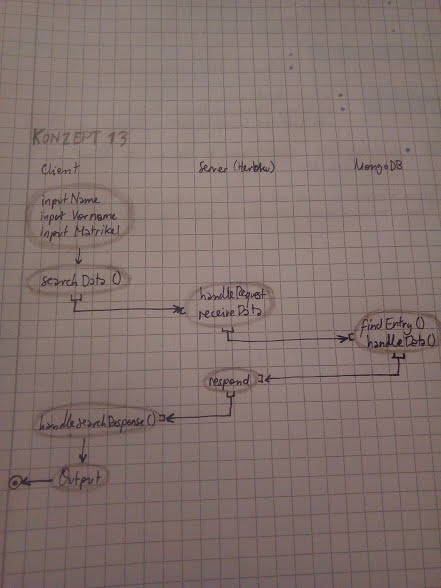 KONZEPT 13
Client
Server (Heroku)
MongoDB
input Name
input Vorname
input Matrikel
searchData ()
handleRequest
receiveData
findEntry ()
handleData ()
respond
handleSearchResponse ()
Output